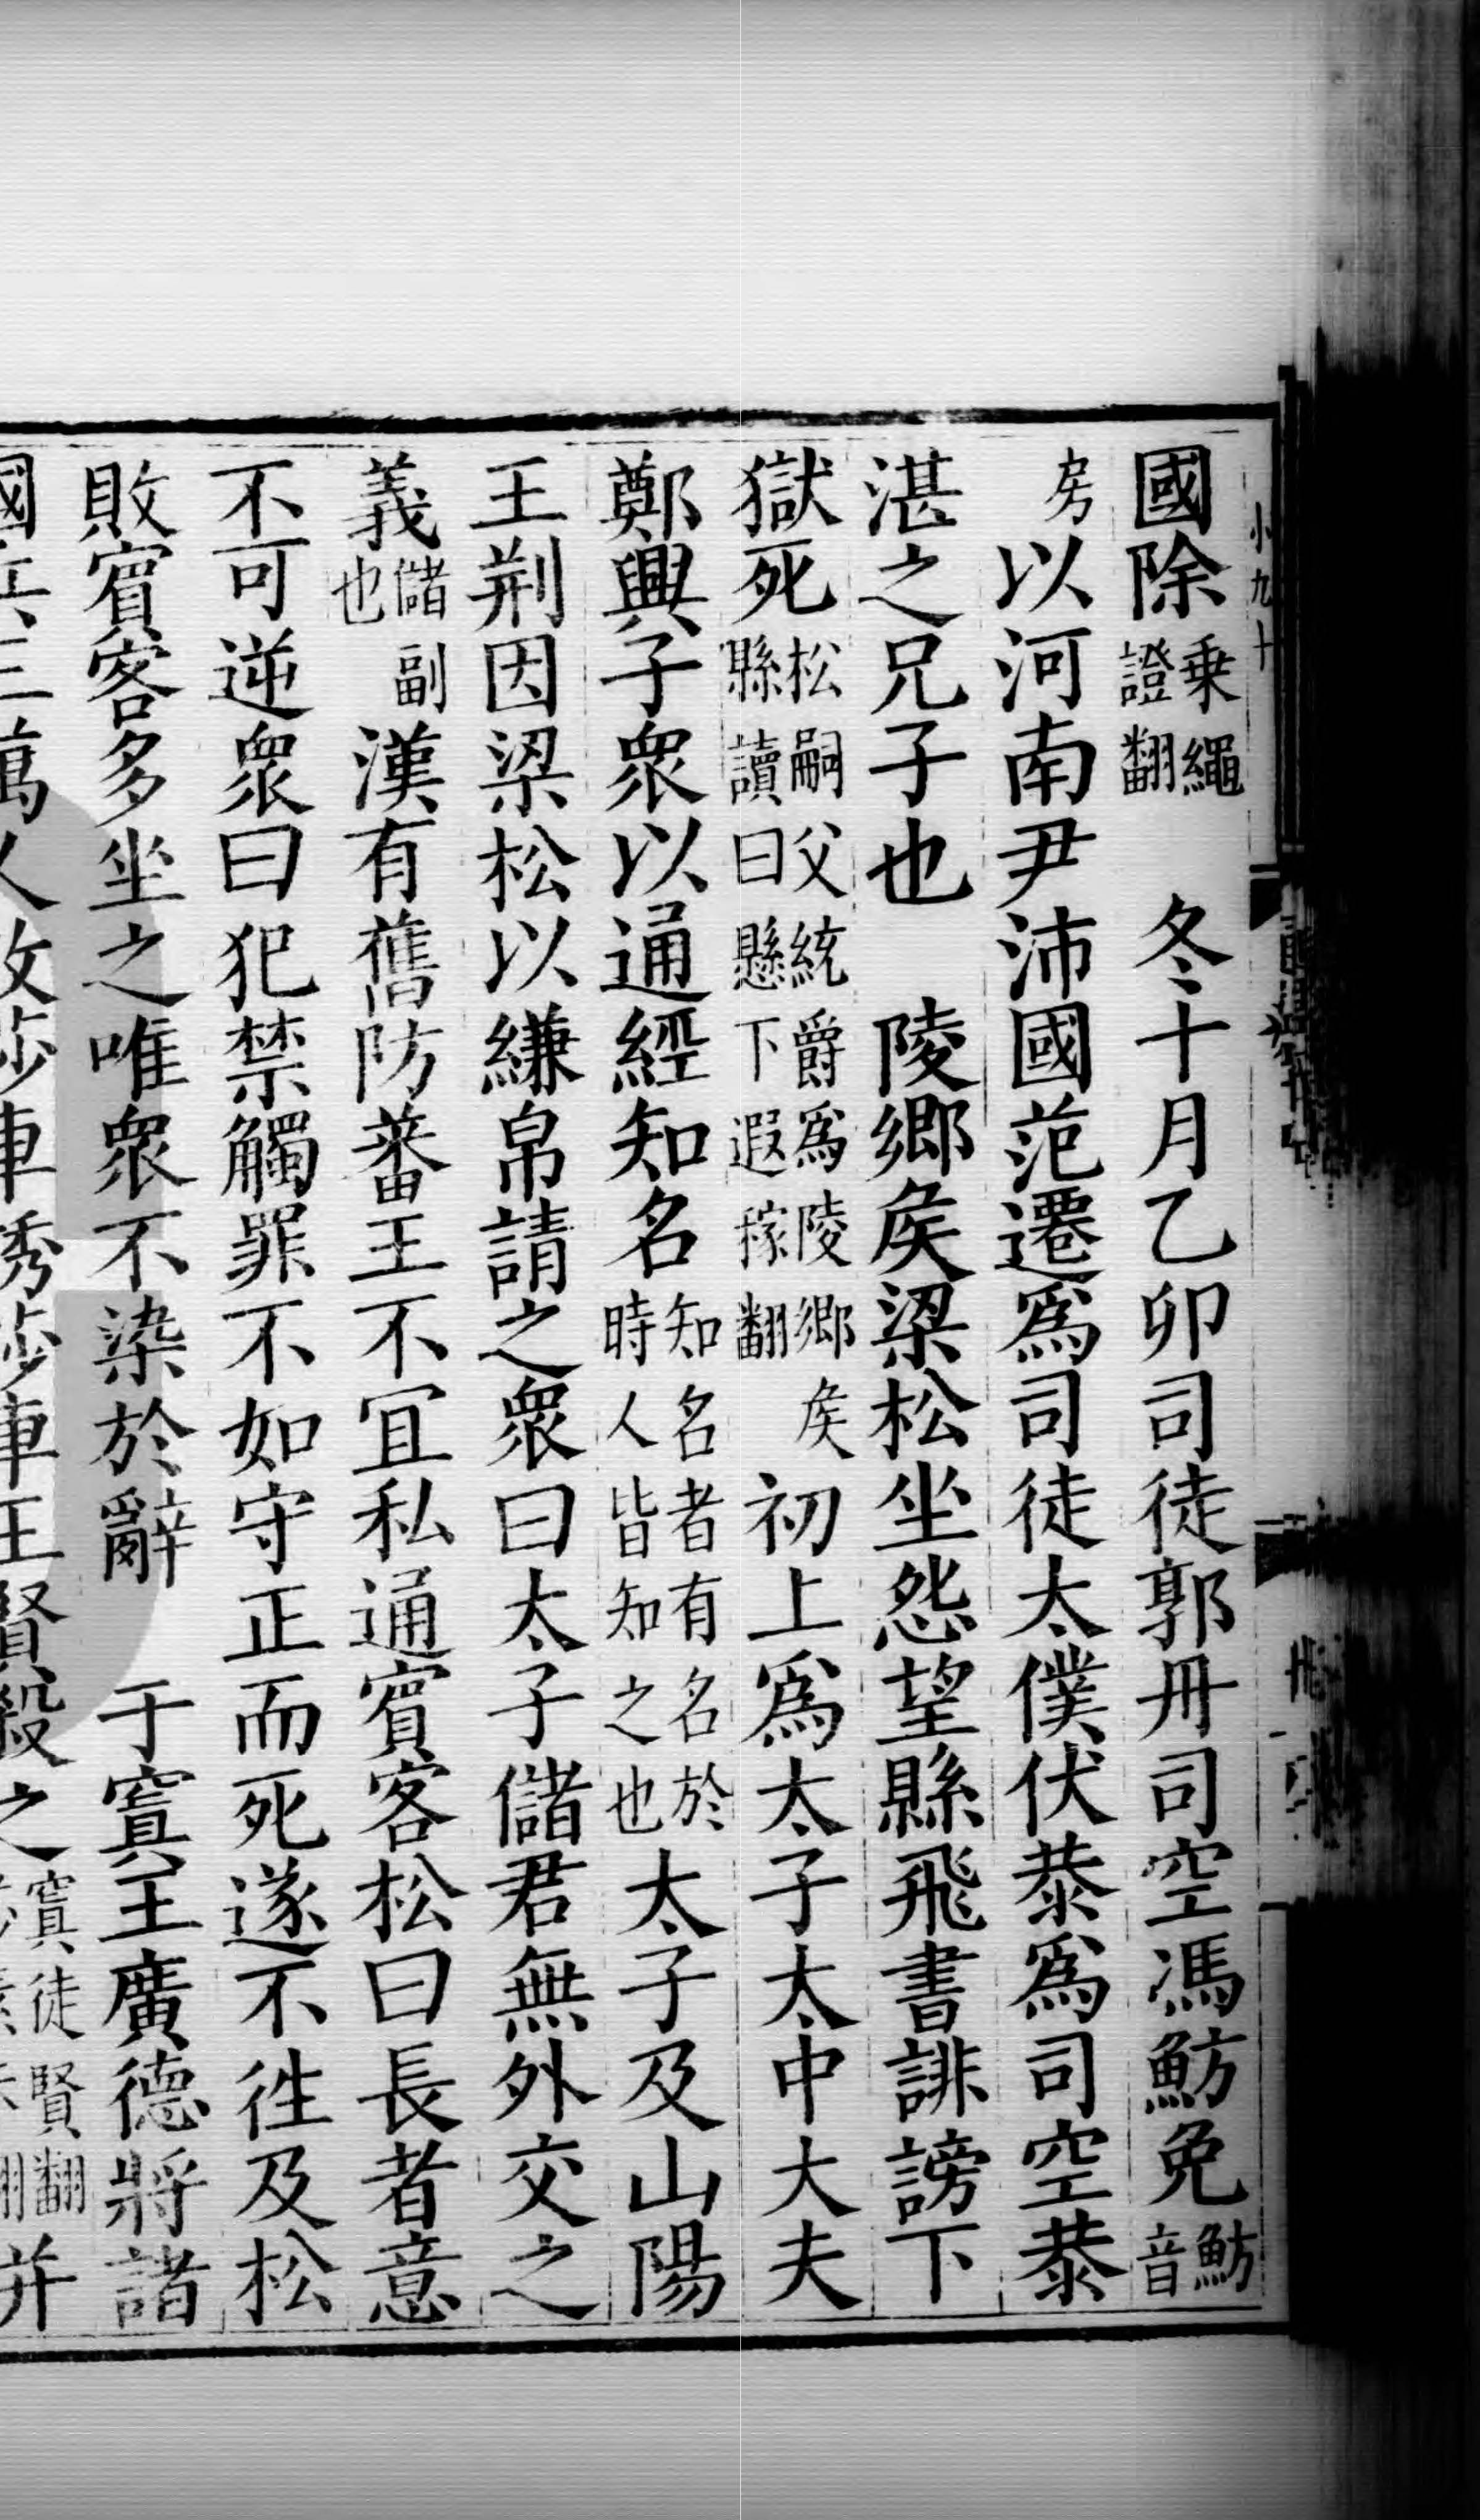 小九十
國除乗繩證翻　冬十月乙卯司徒郭丹司空馮魴免魴音
房以河南尹沛國范遷爲司徒太僕伏恭爲司空恭
湛之兄子也　陵郷矦梁松坐怨望縣飛書誹謗下
獄死松嗣父統爵爲陵郷矦縣讀曰懸下遐稼翻初上爲太子太中大夫
鄭興子衆以通經知名知名者有名於時人皆知之也太子及山陽
王荆因梁松以縑帛請之衆曰太子儲君無外交之
義儲副也漢有舊防蕃王不宜私通賓客松曰長者意
不可逆衆曰犯禁觸罪不如守正而死遂不徃及松
敗賓客多坐之唯衆不染於辭　于窴王廣德將諸
國兵三萬人攻莎車誘莎車王賢殺之窴徒賢翻并